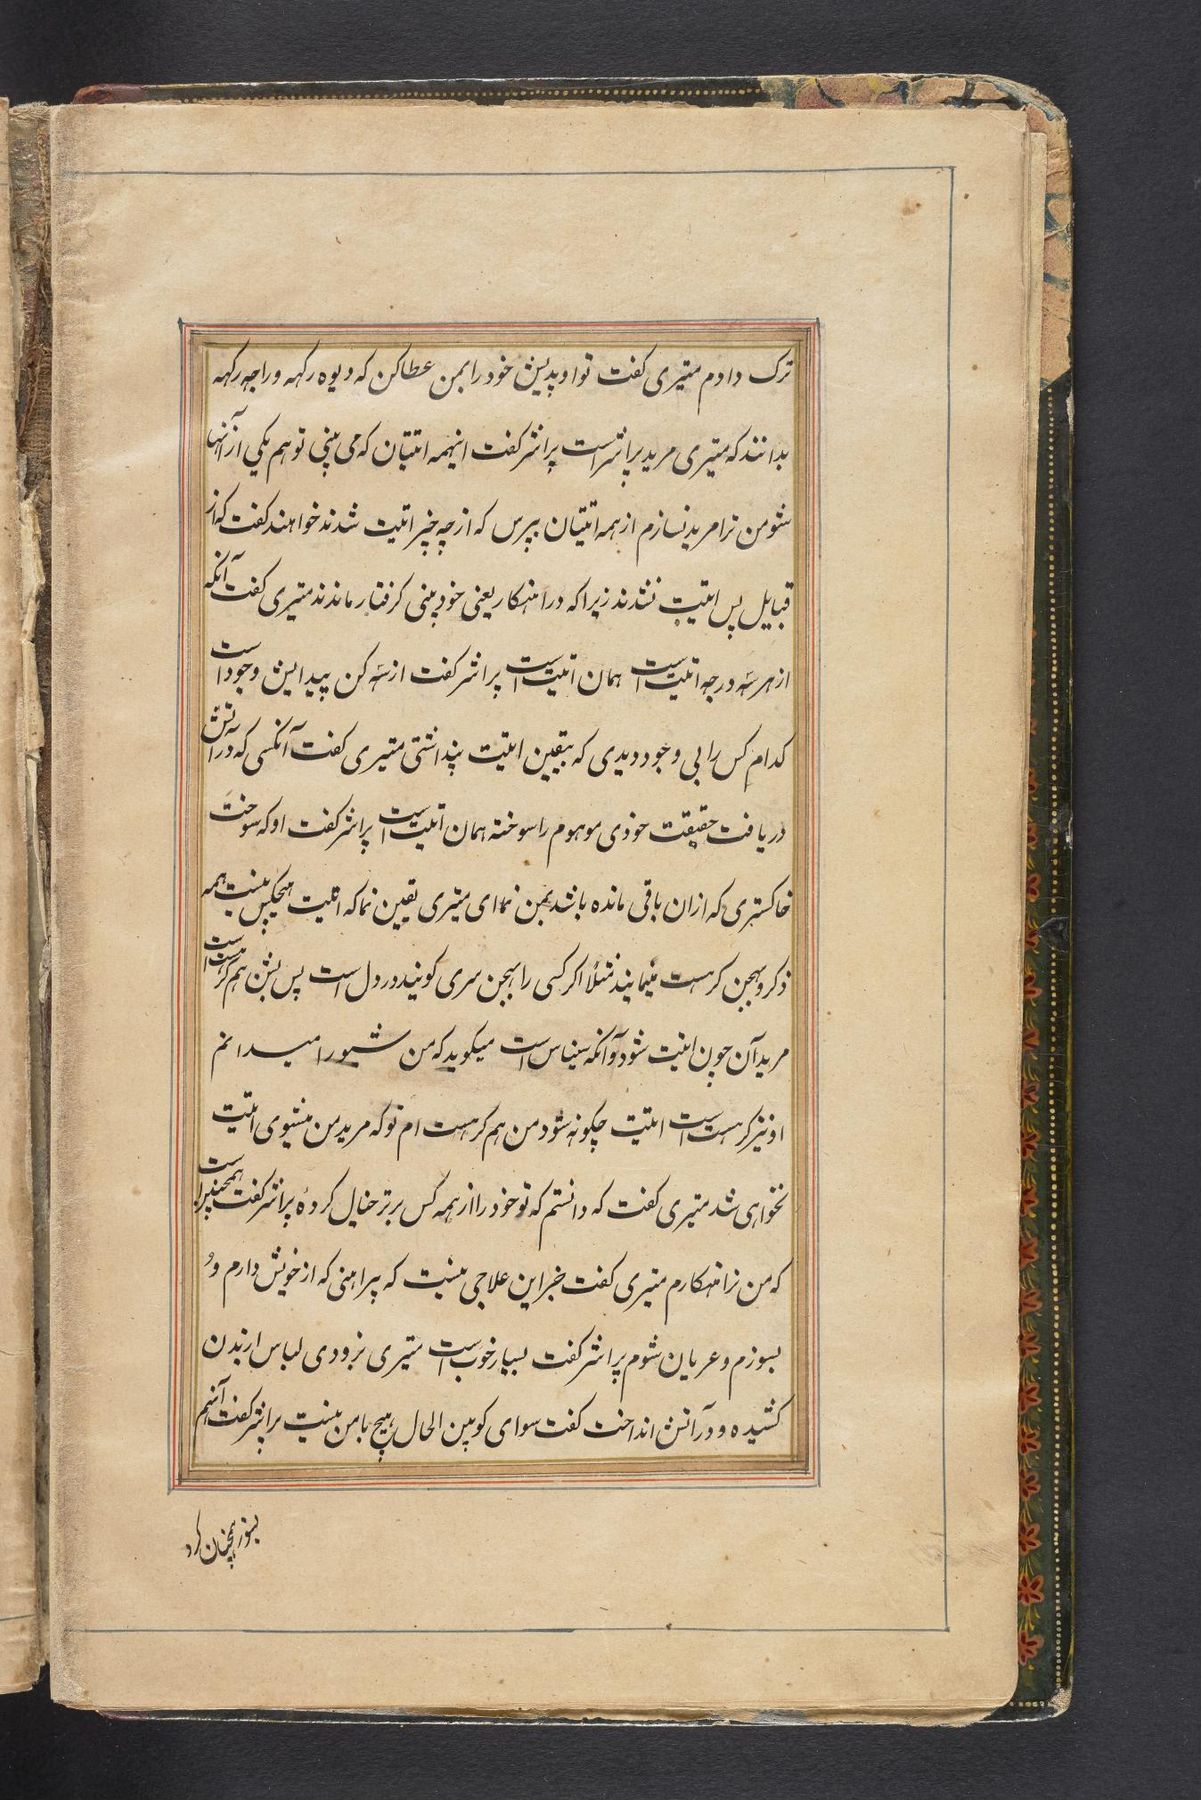 ترک دادم متیری کفت تو اوپدیش خود را بمن عطا کن که دیوه رکهه و راجه رکهه
بدانند که متیری مرید پراشر است پراشر کفت اینهمه اتیتان که می بینی تو هم یکی از آنها
شو من ترا مرید نسازم از همه اتیتان بپرس که از چه چیز اتیت شدند خواهند کفت که از
قبایل پس اتیت نشدند زیرا که در اهنکار یعنی خود بینی کرفتار ماندند متیری کفت آنکه
از هر سه درجه اتیت است همان اتیت است پراشر کفت از سه کن پیدایش وجود است
کدام کس را بی وجود دیدی که بیقین اتیت پنداشتی متیری کفت آنکسی که در آتش
دریافت حقیقت خودی موهوم را سوخته همان اتیت است پراشر کفت او که سوخت
خاکستری که ازان باقی مانده باشد بمن نما ای متیری یقین نما که اتیت هیچکس نیست همه
ذکر و بهجن کرهست مینمایند مثلا اکر کسی را بهجن سری کوبند در دل است پس بشن هم کرهست است
مرید آن چون اتیت شود و آنکه سنیاس است میکوید که من شیو را میدانم
او نیز کرهست است اتیت چکونه شود من هم کرهست ام تو که مرید من میشوی اتیت
نخواهی شد متیری کفت که دانستم که تو خود را از همه کس برتر خیال کردهٔ پراشر کفت همچنین است
که من نراهنکارم متیری کفت جز این علاجی نیست که پیراهنی که از خویش دارم
بسوزم و عریان شوم پراشر کفت بسیار خوب است متیری بزودی لباس از بدن
کشیده و در آتش انداخت کفت سوای کوپین الحال هیچ با من نیست پراشر کفت آنهم
بسوز همچنان کرد